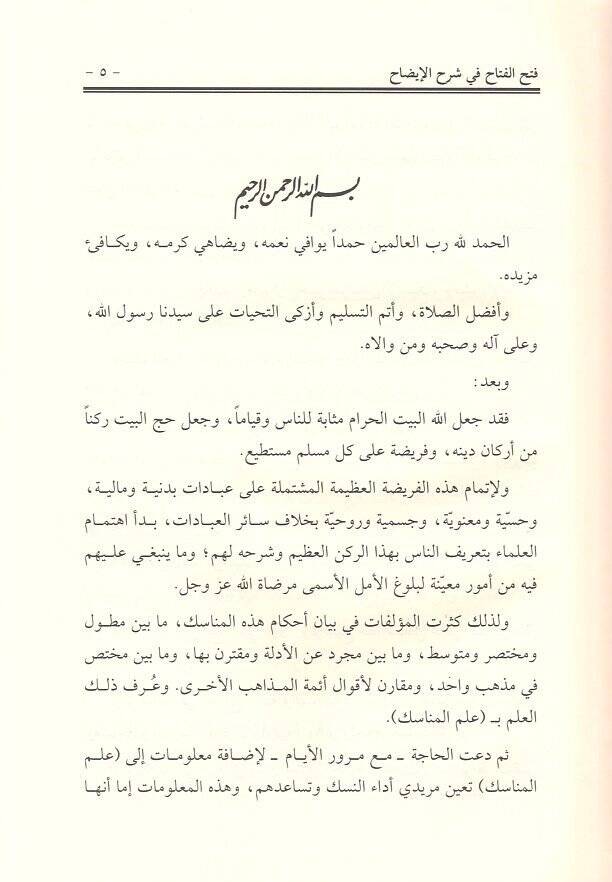 فتح الفتاح في شرح الإيضاح - ٥ -
بسم الله الرحمن الرحيم
الحمد لله رب العالمين حمداً يوافي نعمه، ويضاهي كرمـه، ويكـافئ
مزيده.
وأفضل الصلاة، وأتم التسليم وأزكى التحيات على سيدنا رسول الله،
وعلى آله وصحبه ومن والاه.
وبعد:
فقد جعل الله البيت الحرام مثابة للناس وقياماً، وجعل حج البيت ركناً
من أركان دينه، وفريضة على كل مسلم مستطيع.
ولإتمام هذه الفريضة العظيمة المشتملة على عبـادات بدنيـة وماليـة،
وحسيّة ومعنويّة، وجسمية وروحيّة بخلاف سـائر العبـادات، بـدأ اهتمـام
العلماء بتعريف الناس بهذا الركن العظيم وشرحه لهم؛ وما ينبغـي علـيهم
فيه من أمور معيّنة لبلوغ الأمل الأسمى مرضاة الله عز وجل.
ولذلك كثرت المؤلفات في بيان أحكام هذه المناسك، ما بين مطـول
ومختصر ومتوسط، وما بين مجرد عن الأدلة ومقترن بها، وما بين مختص
في مذهب واحد، ومقارن لأقوال أئمة المـذاهب الأخـرى. وعُـرف ذلـك
العلم بـ (علم المناسك).
ثم دعت الحاجة ـ مـع مرور الأيام ـ لإضافة معلومـات إلى (علـم
المناسك) تعين مريدي أداء النسك وتساعدهم، وهذه المعلومات إما أنهـا